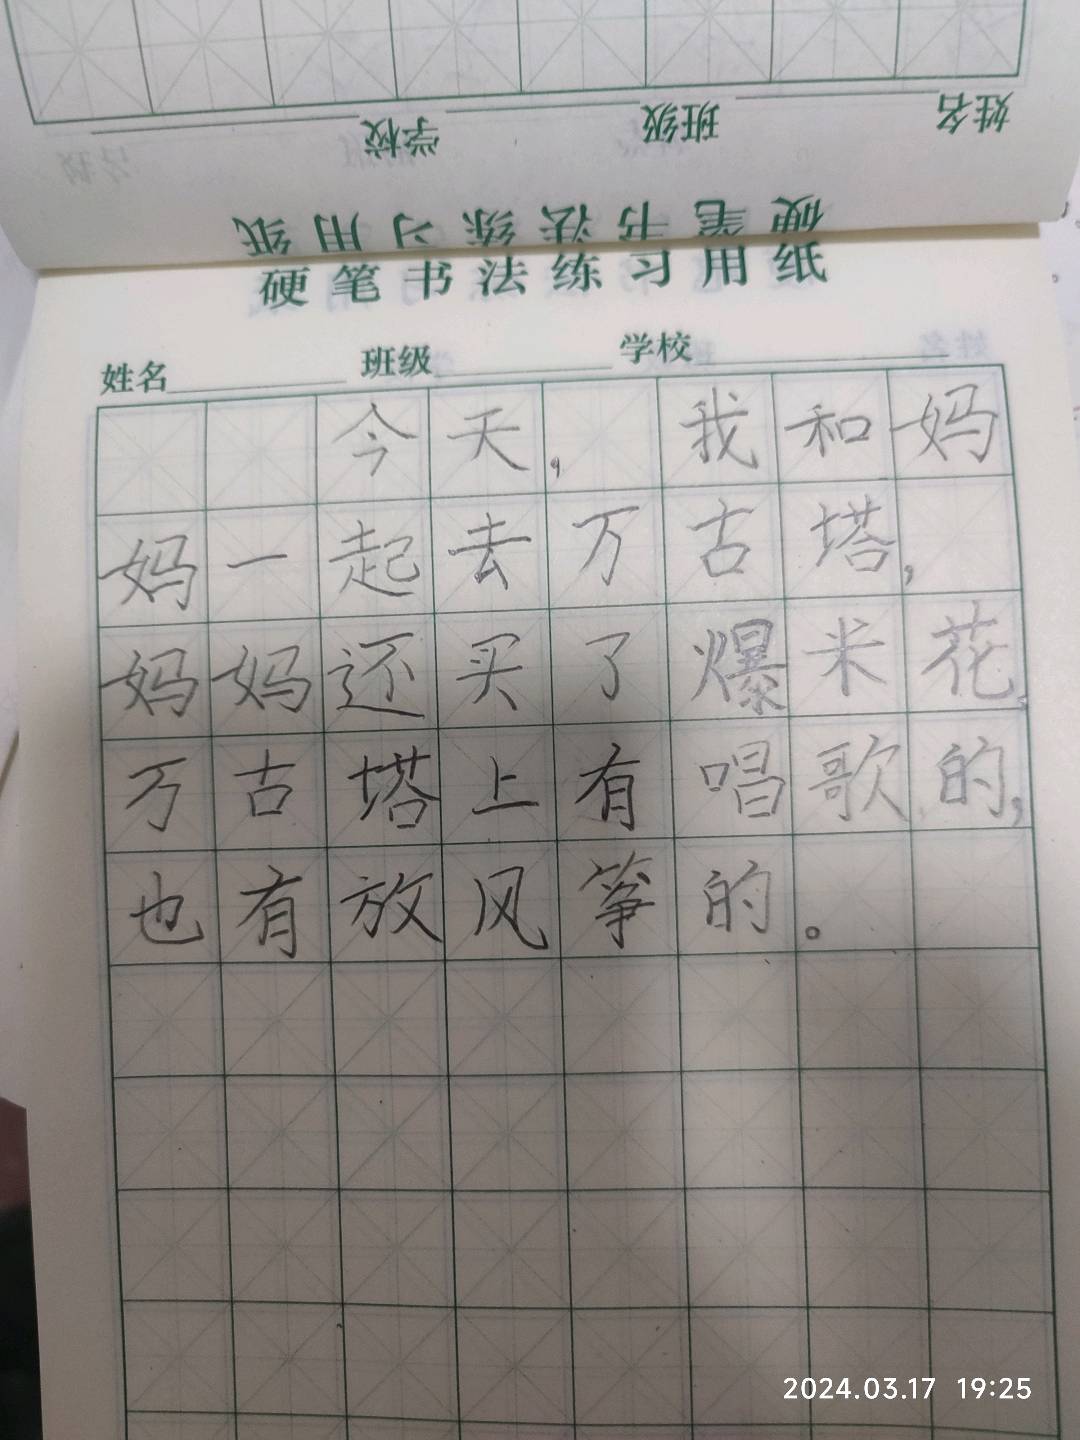 姓名 班级 学校
硬笔书法练习用纸
硬笔书法练习用纸
姓名 班级 学校
今天，我和妈
妈一起去万古塔，
妈妈还买了爆米花，
万古塔上有唱歌的，
也有放风筝的。
2024.03.17 19:25